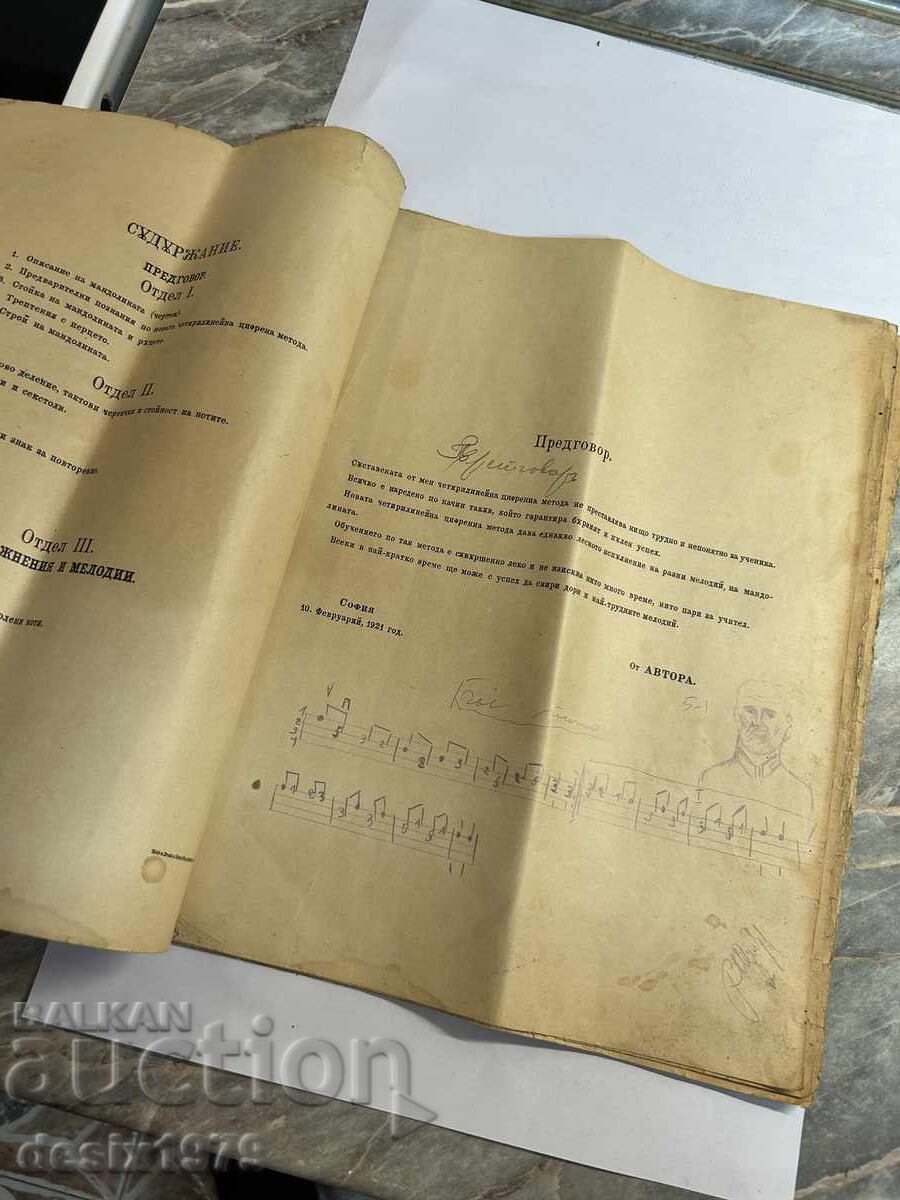 СѪДѪРЖАНИЕ.
ПРЕДГОВОР.
Отдел I.
1. Описание на мандолината (чертеж)
2. Предварителни познания по новата четирилинейна цифрена метода.
3. Стойка на мандолината и рѫцете.
Трептения с перцето.
Строй на мандолината.
Отдел II.
деление, тактови чертички и стойност на нотите.
и секстоли.
и знак за повторение
Отдел III.
ЖНЕНИЯ И МЕЛОДИИ.
ноти.
Предговор.
Сѫставената от мен четирилинейна цифрена метода не преставлява нищо трудно и непонятно за ученика.
Всичко е наредено по начин такѫв, който гарантира бѫрзият и пѫлен успех.
Новата четирилинейна цифрена метода дава еднакво лесното изпѫлнение на разни мелодий, на мандо-
лината.
Обучението по тая метода е сѫвѫршено леко и не изисква нито много време, нито пари за учител.
Всеки в най-кратко време ще може с успех да свири дори и най-трудните мелодий.
СОФИЯ
10. Февруарий, 1921 год.
От АВТОРА.
5-1
BALKAN
auction
desix1979